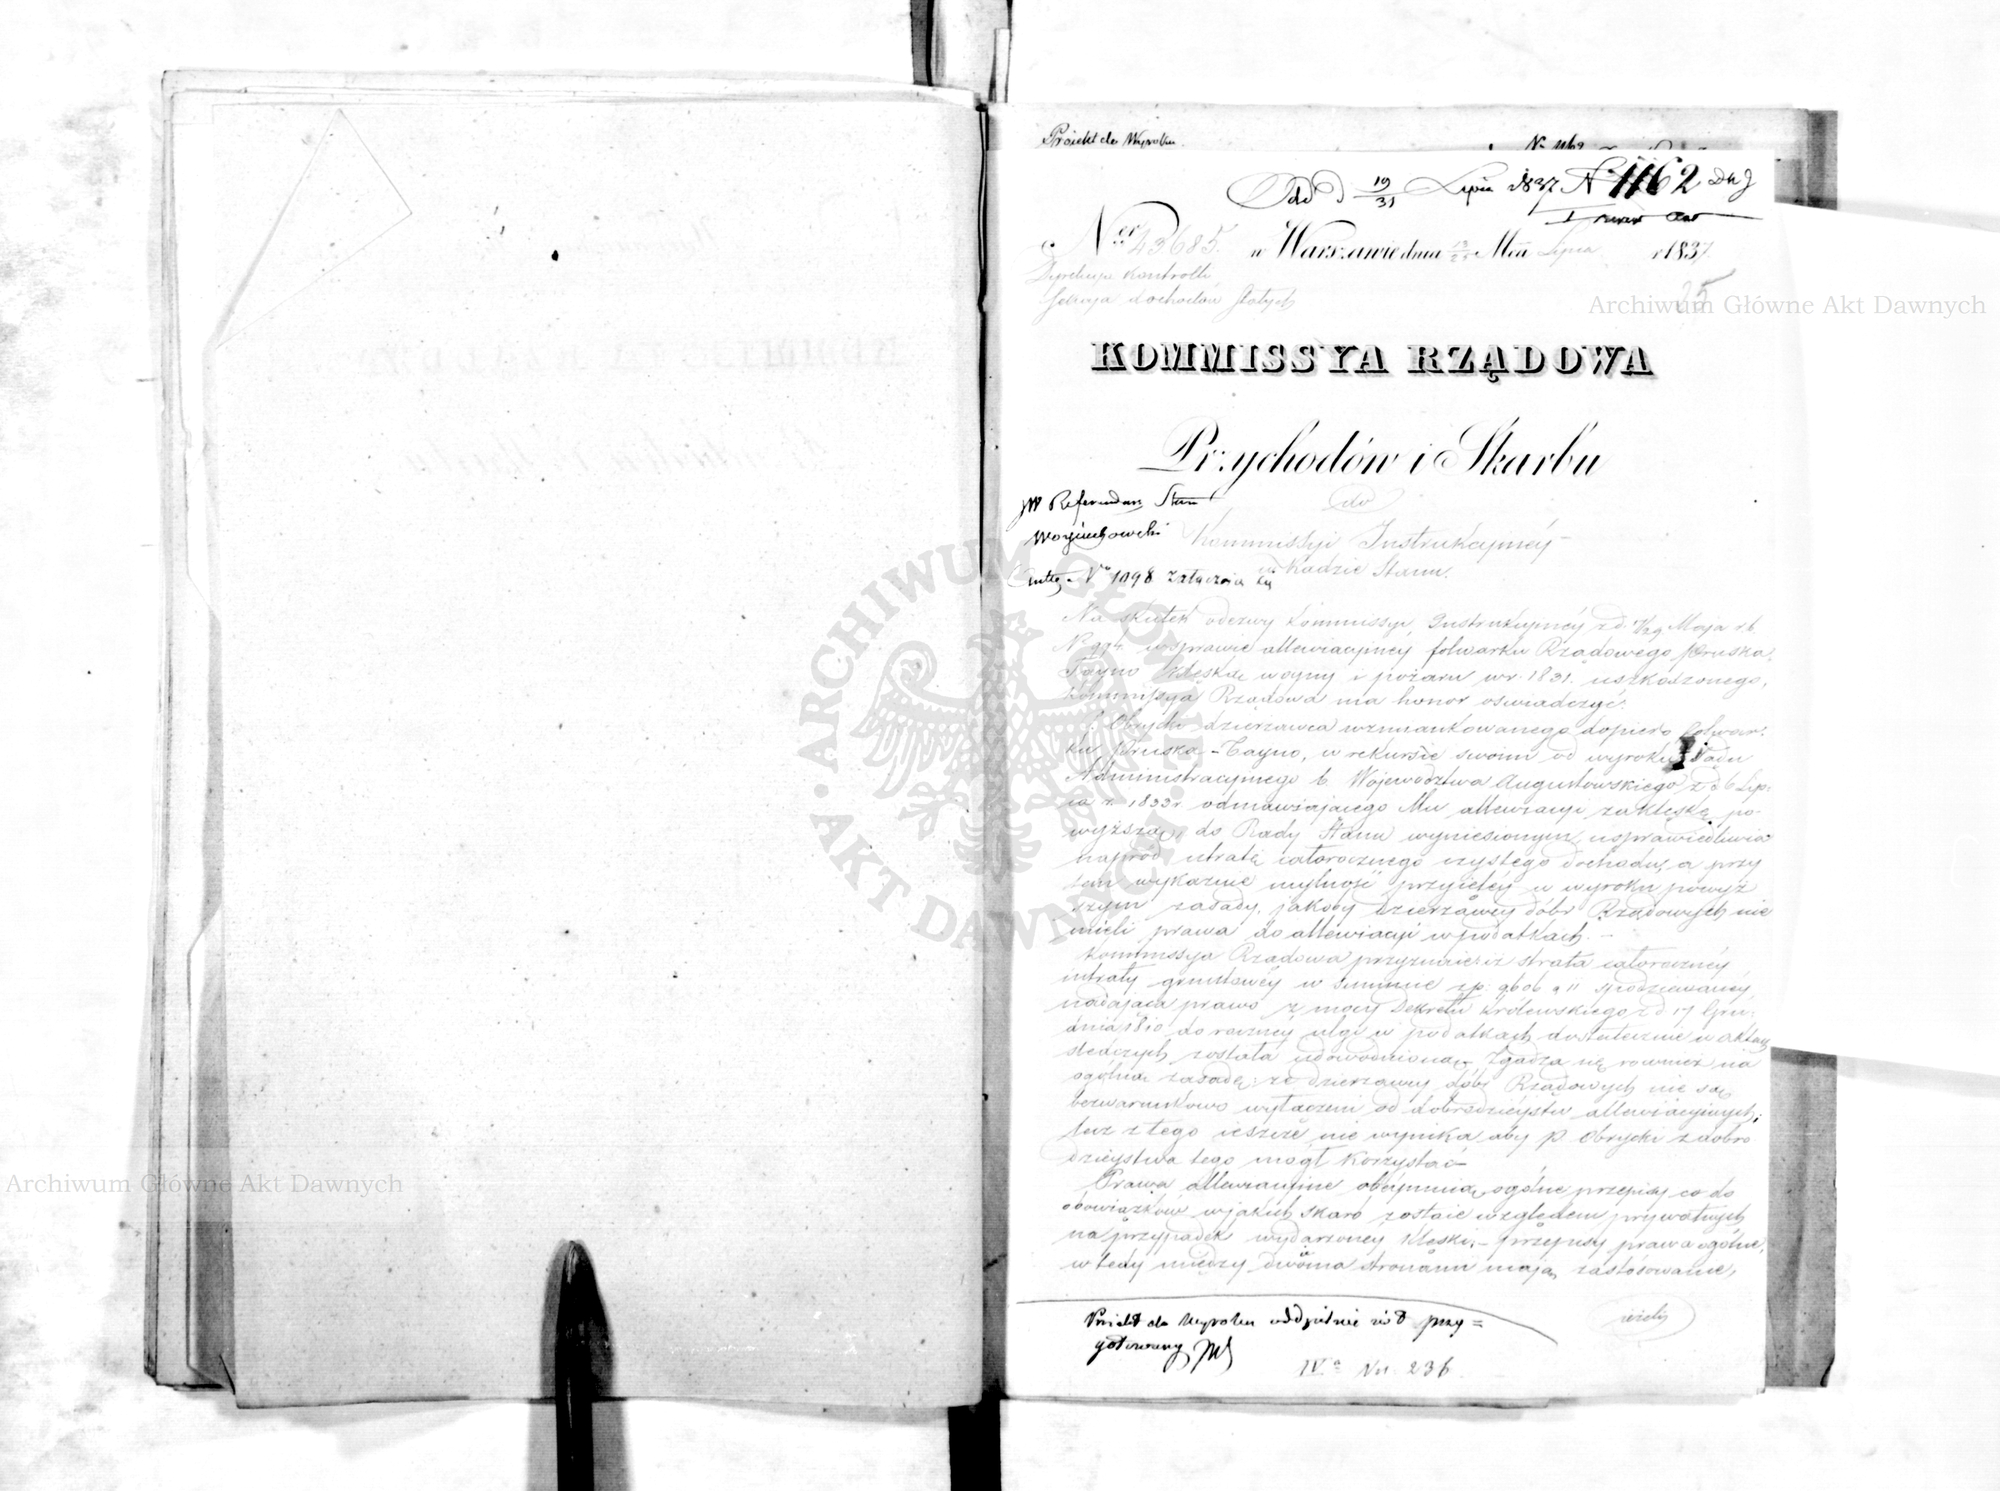 Projekt do Wyroku.
Nr 1162
Odd d 19/31 Lipca 1837 N 1162 D K J
Ner 43685. w Warszawie dnia 13/25 Mca Lipca r 1837.
Dyrekcya Kontrolli
Sekcya dochodów Stałych
25
KOMMISSYA RZĄDOWA
Przychodów i Skarbu
do
JW Referendarz Stanu
Woyciechowski
Kommissyi Instrukcyinéy
w Radzie Stanu.
N 1098 załącza się
Na skutek odezwy Kommissyi Instrukcyinéy z d. 17/29 Maja r.b.
N 974. w sprawie allewiacyinéy folwarku Rządowego Pruska-
Tayno klęską woyny i pożaru w r. 1831. uszkodzonego,
Kommissya Rządowa ma honor oświadczyć:
P. Obrycki dzierzawca wzmiankowanego dopiero folwar-
ku Pruska-Tayno, w rekursie swoim od wyroku Sądu
Administracyinego b. Województwa Augustowskiego z d 6 Lip-
ca r. 1833 r odmawiaiącego Mu allewiacyi za klęskę po-
wyższą, do Rady Stanu wyniesionym, usprawiedliwia
naprzód utratę całorocznego czystego dochodu, a przy
tem wykazuie mylność przyiętéy w wyroku powyż
szym zasady, jakoby dzierzawcy dóbr Rządowych nie
mieli prawa do allewiacyi w podatkach. –
Kommissya Rządowa przyznaie: iż strata całorocznéy
intraty gruntowéy w summie zp. 9606 g 11 spodziewanéy,
nadaiąca prawo z mocy Dekretu Królewskiego z d 17 Gru-
dnia 1810 do roczney ulgi w podatkach dostatecznie w aktach
śledczych została udowodnioną. Zgadza się również na
ogólną zasadę: że dzierzawcy dóbr Rządowych nie są
bezwarunkowo wyłączeni od dobrodzieystw allewiacyinych;
lecz z tego ieszcze nie wynika aby P. Obrycki z dobro
dzieystwa tego mógł korzystać
Prawa allewiacyine obeymuią ogólne przepisy co do
obowiązków w jakich skarb zostaie względem prywatnych
na przypadek wydarzoney klęski, – przepisy prawa ogólne,
wtedy między dwoma stronami maią zastosowanie,
ieżeli
Projekt do Wyroku oddzielnie iest przy=
gotowany
IV Vol. 236
Archiwum Główne Akt Dawnych
Archiwum Główne Akt Dawnych
ARCHIWUM GŁÓWNE · AKT DAWNYCH ·